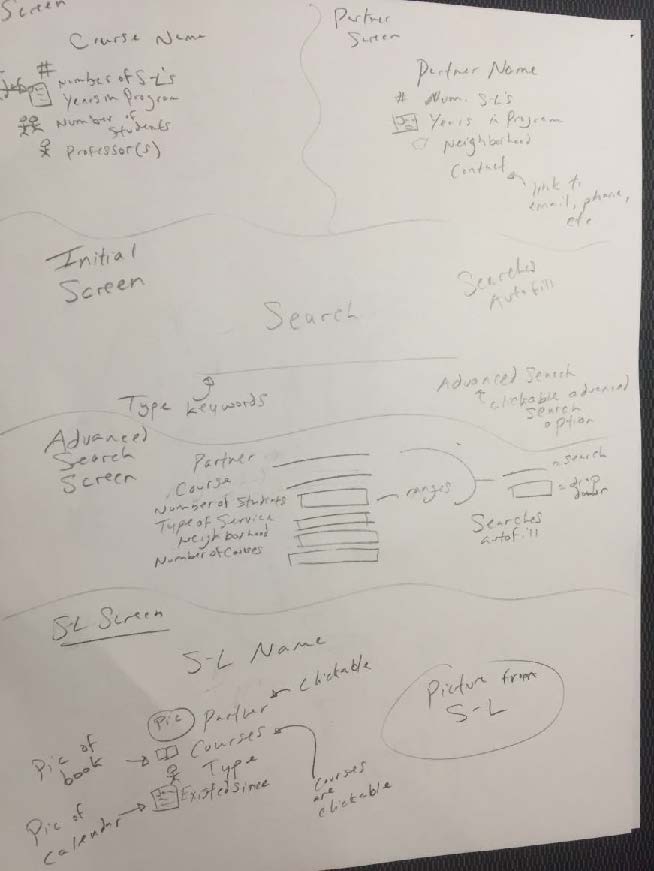 Screen
Course Name
# Number of S-L's
Years in Program
Number of
Students
Professor(s)
Partner
Screen
Partner Name
# Num. S-L's
Years in Program
Neighborhood
Contact
link to
email, phone,
etc
Initial
Screen
Searches
Autofill
Search
Type keywords
Advanced Search
clickable advanced
search
option
Advanced
Search
Screen
Partner
Course
Number of Students
Type of Service
Neighborhood
Number of Courses
ranges
= search
= drop
down
Searches
autofill
S-L Screen
S-L Name
Pic
Partner
Clickable
Courses
Type
Existed since
Pic of
book
Pic of
Calendar
Courses
are
clickable
Picture from
S-L